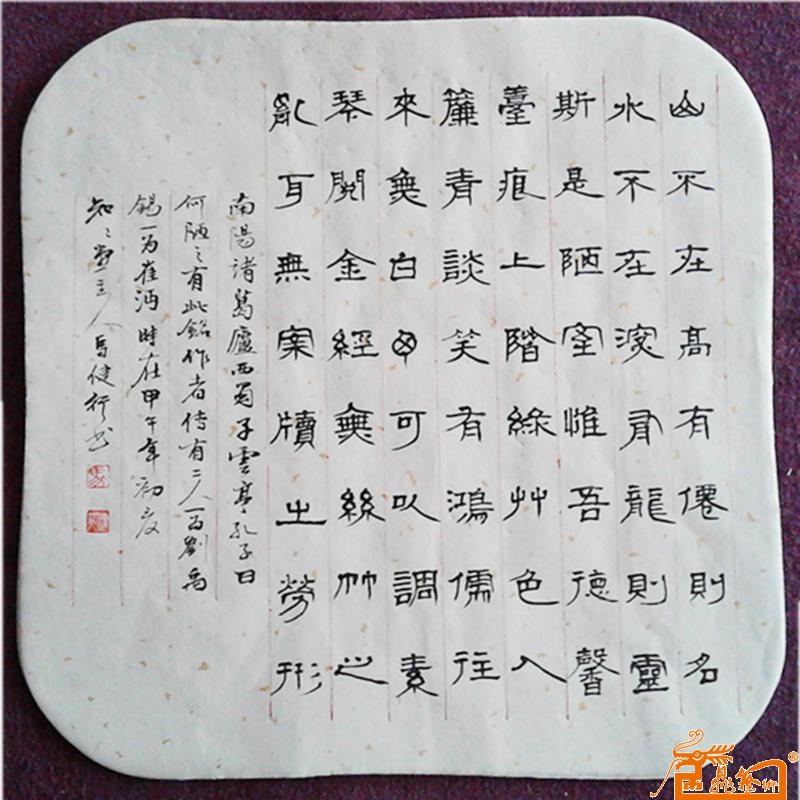 山不在高有僊則名
水不在深有龍則靈
斯是陋室惟吾德馨
臺痕上階綠艸色入
簾青談笑有鴻儒往
來無白丁可以調素
琴閱金經無絲竹之
亂耳無案牘之勞形
南陽诸葛廬西蜀子雲亭孔子曰
何陋〻有此銘作者传有二人一为劉禹
锡一为崔沔時在甲午年初夏
知〻主人馬健行书